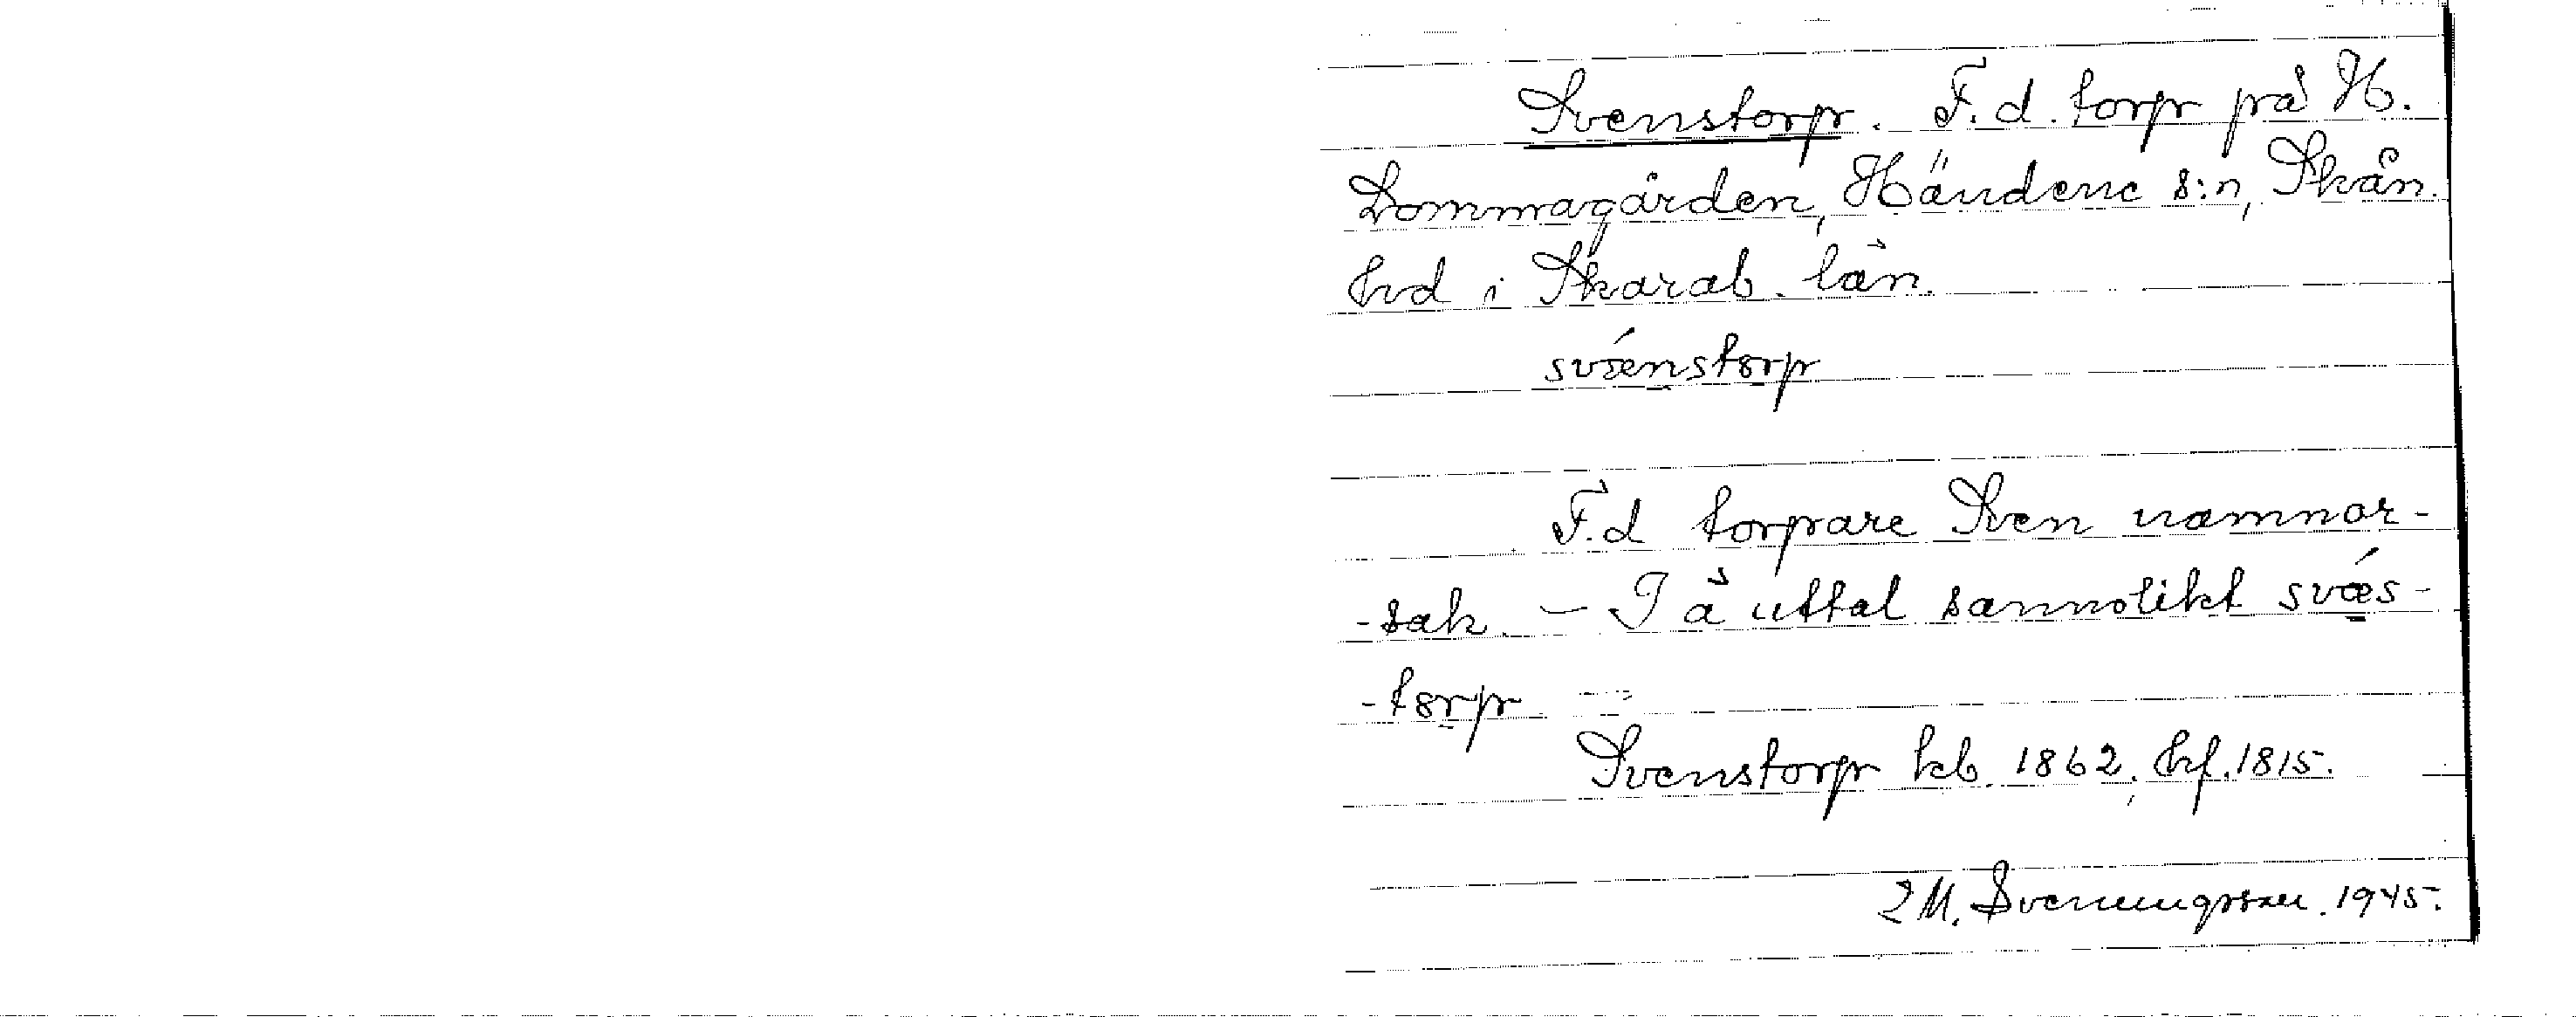 Svenstorp. F.d. torp på H.
Lommagården, Händene s:n, Skån.
hvd i Skarab. län.
svǽnstorp
F.d torpare Sven namnor-
-sak. – I ä uttal sannolikt svǽs-
-torp
Svenstorp kb. 1862, hf. 1815.
M. Svenungsson. 1945.